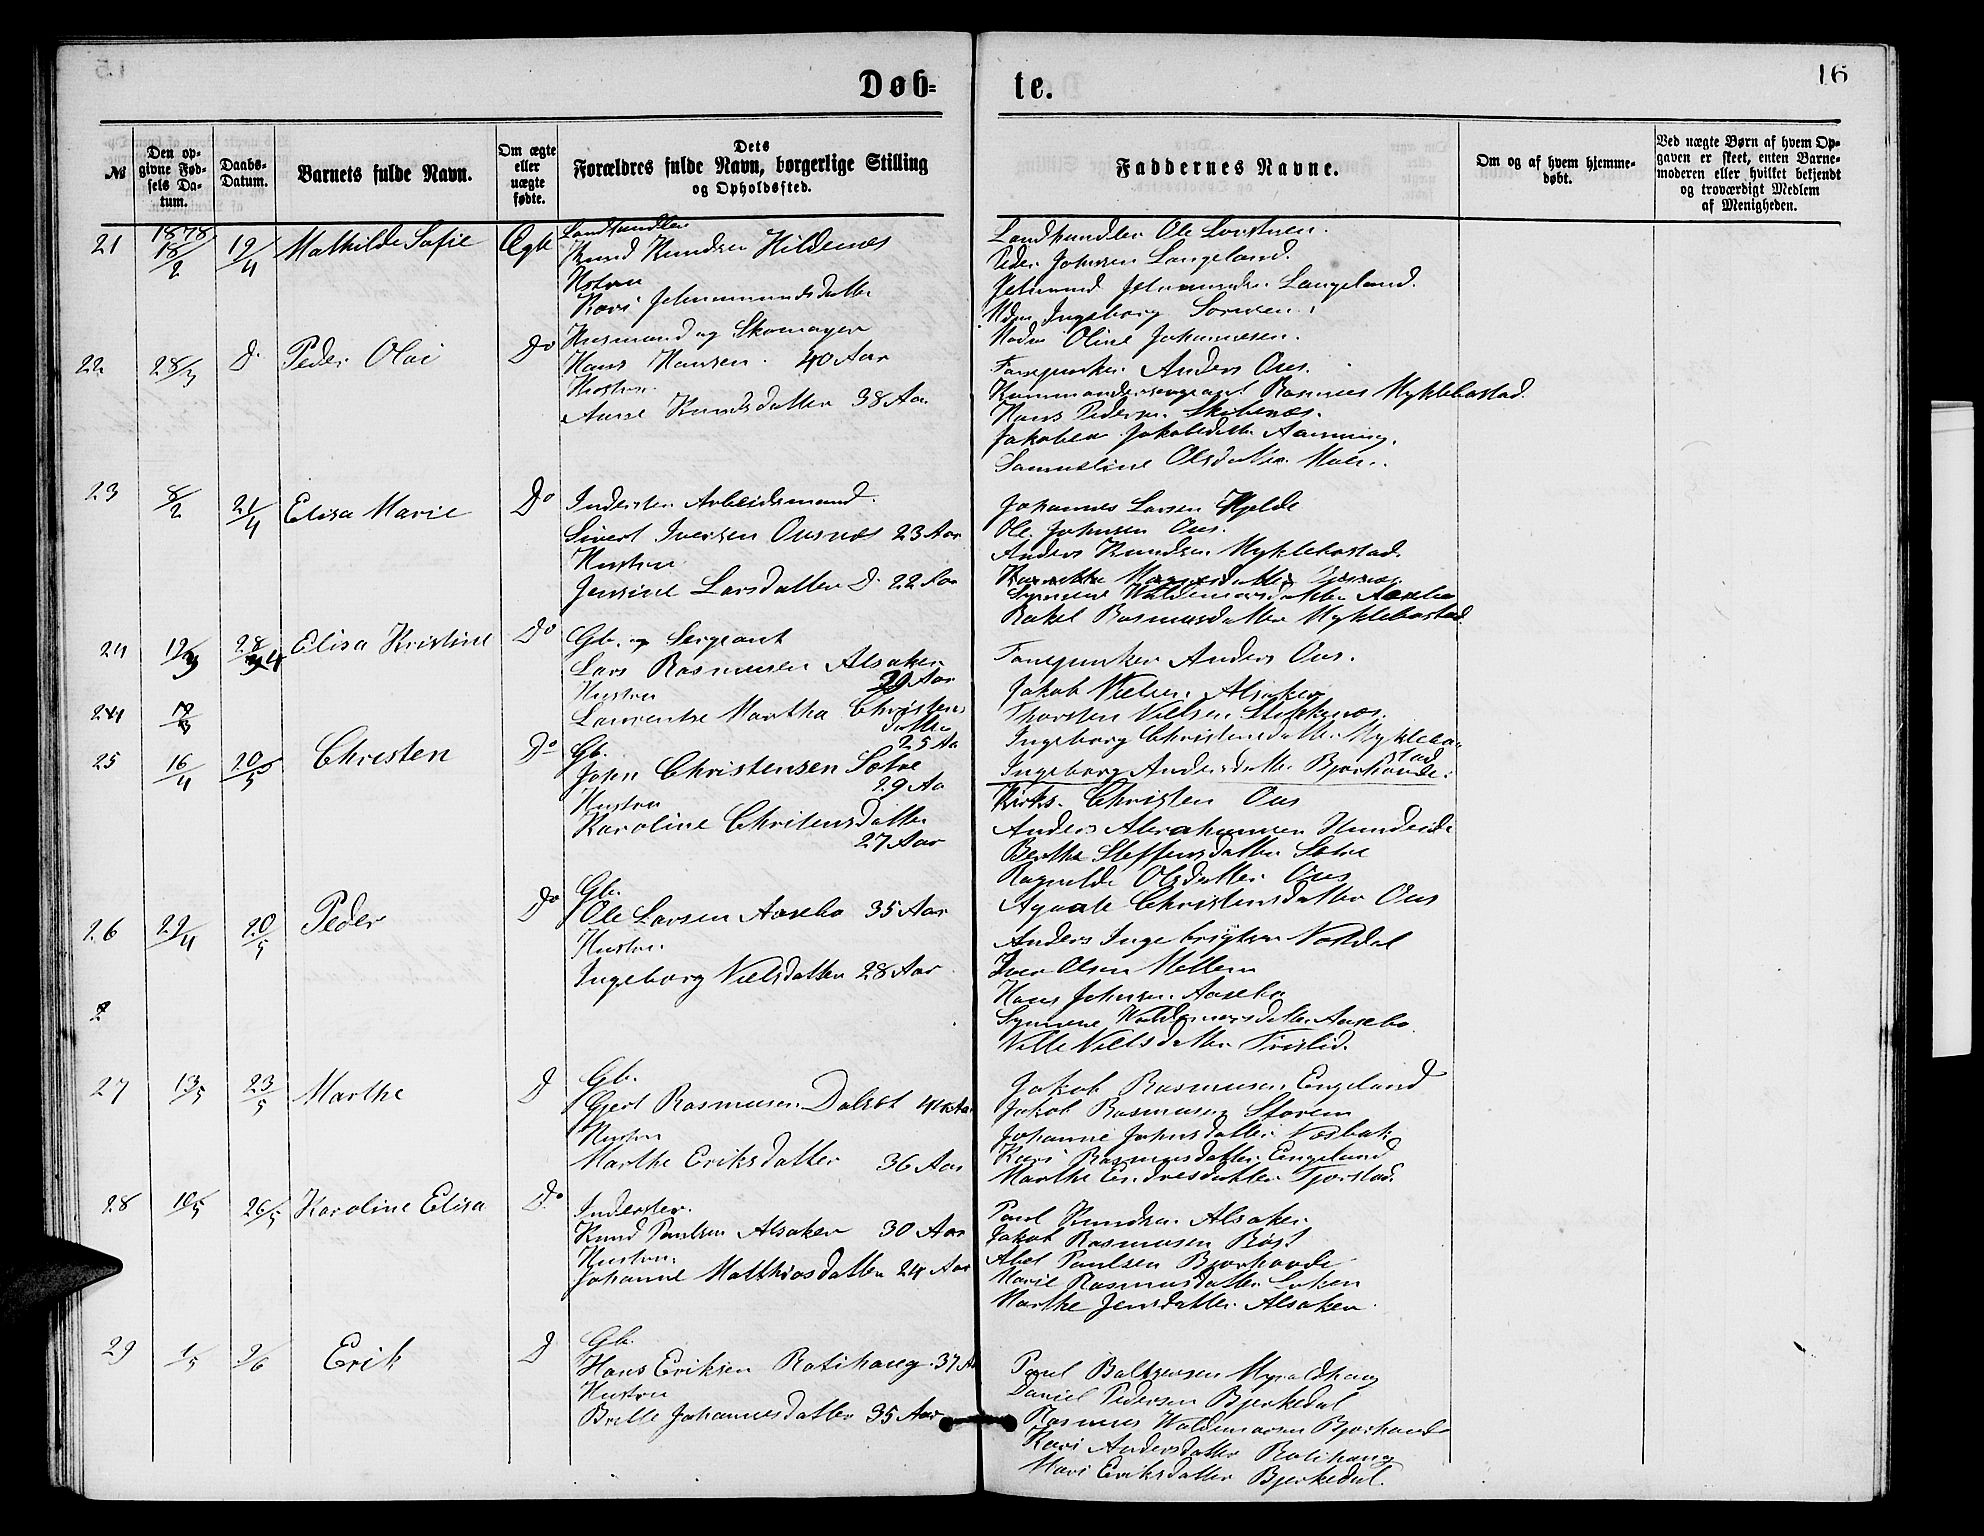 15
16
Døb=
te.
№
Den op-
givne Fød-
sels Da-
tum.
Daabs-
Datum.
Barnets fulde Navn.
Om ægte
eller
uægte
fødte.
Dets
Forældres fulde Navn, borgerlige Stilling
og Opholdssted.
Faddernes Navne.
Om og af hvem hjemme-
døbt.
Ved uægte Børn af hvem Op-
gaven er skeet, enten Barne-
moderen eller hvilket bekjendt
og troværdigt Medlem
af Menigheden.
1878
21 18/2 19/4 Mathilde Sofie Ægte
Landhandler
Knud Knudsen Hildenes
Hstru
Kari Jetmundsdatter
Landhandler Ole
Peder Johnsen Langeland.
Jetmund Jetmundsen Langeland.
Mdm Ingeborg
Madm Oline Johannesen.
22 28/3 D. Peder Olai Do
Husmand og Skomager
Hans Hansen. 40 Aar
Hustru.
Anne Knudsdatter 38 Aar
Fanejunker Anders Ous.
Kommandersergeant Rasmus Myklebostad.
Hans Pedersen
Jakobsdatter
Samueline Olsdatter
23 8/2 21/4 Elisa Marie Do
Inderster Arbeidsmand.
Sivert Iversen Ousnes 23 Aar
Hustru
Jensine Larsdatter D. 22 Aar
Johannes Larsen Hjelde
Ole Johnsen Ous.
Anders Knudsen Myklebostad.
Synneve Waldemarsdatter Aasebø
Rakel Rasmusdatter Myklebostad
24 19/3 28/4 Elisa Kristine Do
Gb. og Sergeant
Lars Rasmusen Alsaker
29 Aar
Hustru
Laurentse Martha Christens
datter
25 Aa
Fanejunker Anders Ous.
Jakob Nielsen Alsaker
Thorsten Nielsen
Ingeborg Christensdatter Myklebo-
stad
Ingeborg Andersdatter Bjørhovde.
24
25 16/4 20/5 Christen Do
Gb.
John Christensen Søtre
29 Aa
Hustru
Karoline Chritensdatter
27 Aar
Kirks. Christen Ous
Anders Abrahamsen Hundeide
Berthe Steffensdatter Søtre
Ragnilde Olsdatter Ous
Agnate Christensdatter Ous
26 29/4 20/5 Peder Do
Gb.
Ole Larsen Aasebø 35 Aar
Hustru
Ingeborg Nielsdatter 28 Aar
Anders Ingebrigtsen Nosdal
Iver Olsen Mellem
Hans Johnsen Aasebø
Synneve Waldemarsdatter Aasebø
Nille Nielsdatter
27 13/5 23/5 Marthe D
Gb.
Gjert Rasmusen Dalsbt Aar
Hustru
Marthe Eriksdatter 36 Aar
Jakob Rasmusen Engeland
Jakob Rasmusen Storem
Johanne Johnsdatter Nosbak
Kari Rasmusdatter Engeland
Marthe Endresdatter Fjørstad.
28 10/5 26/5 Karoline Elisa Do
Inderster.
Knud Paulsen Alsaker 30 Aar
Hustru.
Johanne Matthiasdatter 24 Aar
Paul Knudsen Alsaker
Jakob Rasmusen
Abel Paulsen Bjørhovde
Marie Rasmusdatter
Marthe Jensdatter Alsaker.
29 1/5 9/6 Erik D
Gb.
Hans Eriksen Rotihaug 37 Aa
Hustru
Brette Johannesdatter 35 Aar
Paul Baltzersen Myroldhaug
Daniel Pedersen Bjerkedal
Rasmus Waldemarsen Bjørhovde
Kari Andersdatter Rotihaug
Mari Eriksdatter Bjerkedal.